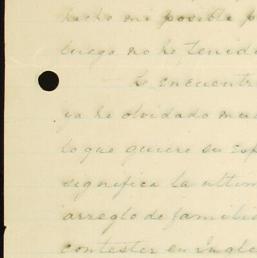 hecho mi posible p
luego no he tenid
Le encuentr
ya he olvidado mu
lo que quiere su esp
significa la ultim
arreglo de familia
contester en Ingle